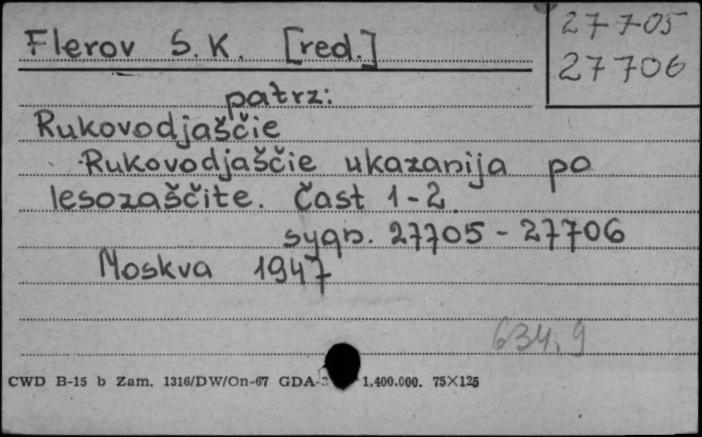 Flerov S.K. [red.]
27705
27706
patrz:
Rukovodjaščie
Rukovodjaščie ukazanija po
lesozaščite. Čast 1-2.
sygn. 27705 - 27706
Moskva 1947
634.9
CWD B-15 b Zam. 1316/DW/On-67 GDA- 1.400.000. 75X125